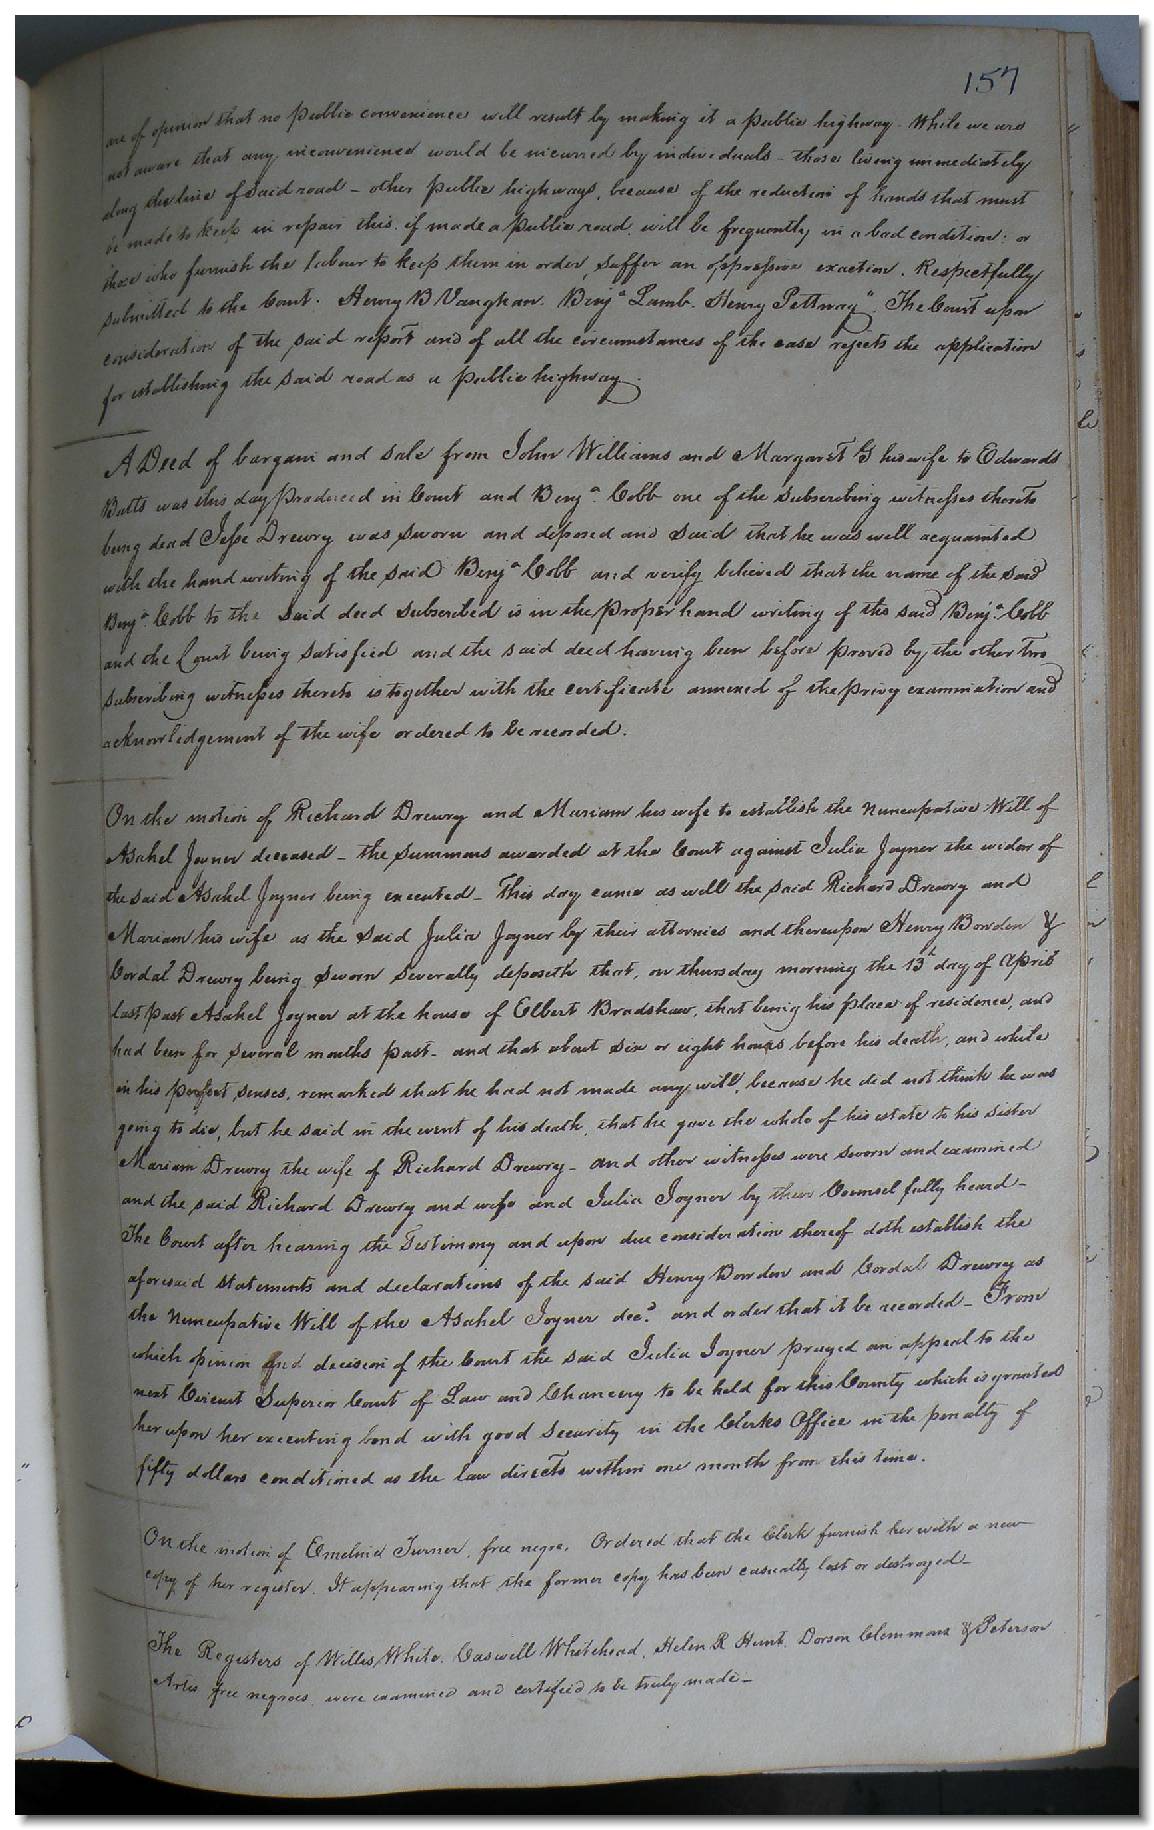 157
are of opinion that no public convenience will result by making it a public highway. While we are
not aware that any inconvenience would be incurred by individuals - those living immediately
along the line of said road - other public highways, because of the reduction of hands that must
be made to keep in repair this, if made a public road, will be frequently in a bad condition; or
those who furnish the labour to keep them in order, suffer an oppressive exaction. Respectfully
submitted to the Court. Henry B Vaughan. Benja Lamb. Henry Pettway". The Court upon
consideration of the said report and of all the circumstances of the case rejects the application
for establishing the said road as a public highway.
A Deed of bargain and sale from John Williams and Margaret G his wife to Edwards
Butts was this day produced in Court and Benja. Cobb one of the subscribing witnesses thereto
being dead Jesse Drewry was sworn and deposed and said that he was well acquainted
with the hand writing of the said Benja Cobb and verily believed that the name of the said
Benja. Cobb to the said deed subscribed is in the proper hand writing of the said Benja. Cobb
and the Court being satisfied and the said deed having been before proved by the other two
subscribing witnesses thereto is together with the certificate annexed of the privy examination and
acknowledgement of the wife ordered to be recorded.
On the motion of Richard Drewry and Mariam his wife to establish the Nuncupative Will of
Asahel Joyner deceased - the summons awarded at the Court against Julia Joyner the widow of
the said Asahel Joyner being executed - This day came as well the said Richard Drewry and
Mariam his wife as the said Julia Joyner by their attornies and thereupon Henry Bowden &
Cordal Drewry being sworn severally deposeth that, on thursday morning the 13th day of April
last past Asahel Joyner at the house of Elbert Bradshaw, that being his place of residence, and
had been for several months past - and that about six or eight hours before his death, and while
in his perfect senses, remarked that he had not made any will, because he did not think he was
going to die, but he said in the event of his death, that he gave the whole of his estate to his sister
Mariam Drewry the wife of Richard Drewry - and other witnesses were sworn and examined
and the said Richard Drewry and wife and Julia Joyner by their Counsel fully heard -
The Court after hearing the Testimony and upon due consideration thereof doth establish the
aforesaid statements and declarations of the said Henry Bowden and Cordal Drewry as
the Nuncupative Will of the Asahel Joyner decd. and order that it be recorded - From
which opinion and decision of the Court the said Julia Joyner prayed an appeal to the
next Circuit Superior Court of Law and Chancery to be held for this County which is granted
her upon her executing bond with good security in the Clerks Office in the penalty of
fifty dollars conditioned as the law directs within one month from this time.
On the motion of Emeline Turner, free negro, Ordered that the Clerk furnish her with a new
copy of her register. It appearing that the former copy has been casually lost or destroyed -
The Registers of Willis White, Caswell Whitehead, Helen R Hunt, Dorson Clemmons & Peterson
Artis free negroes, were examined and certified to be truly made -